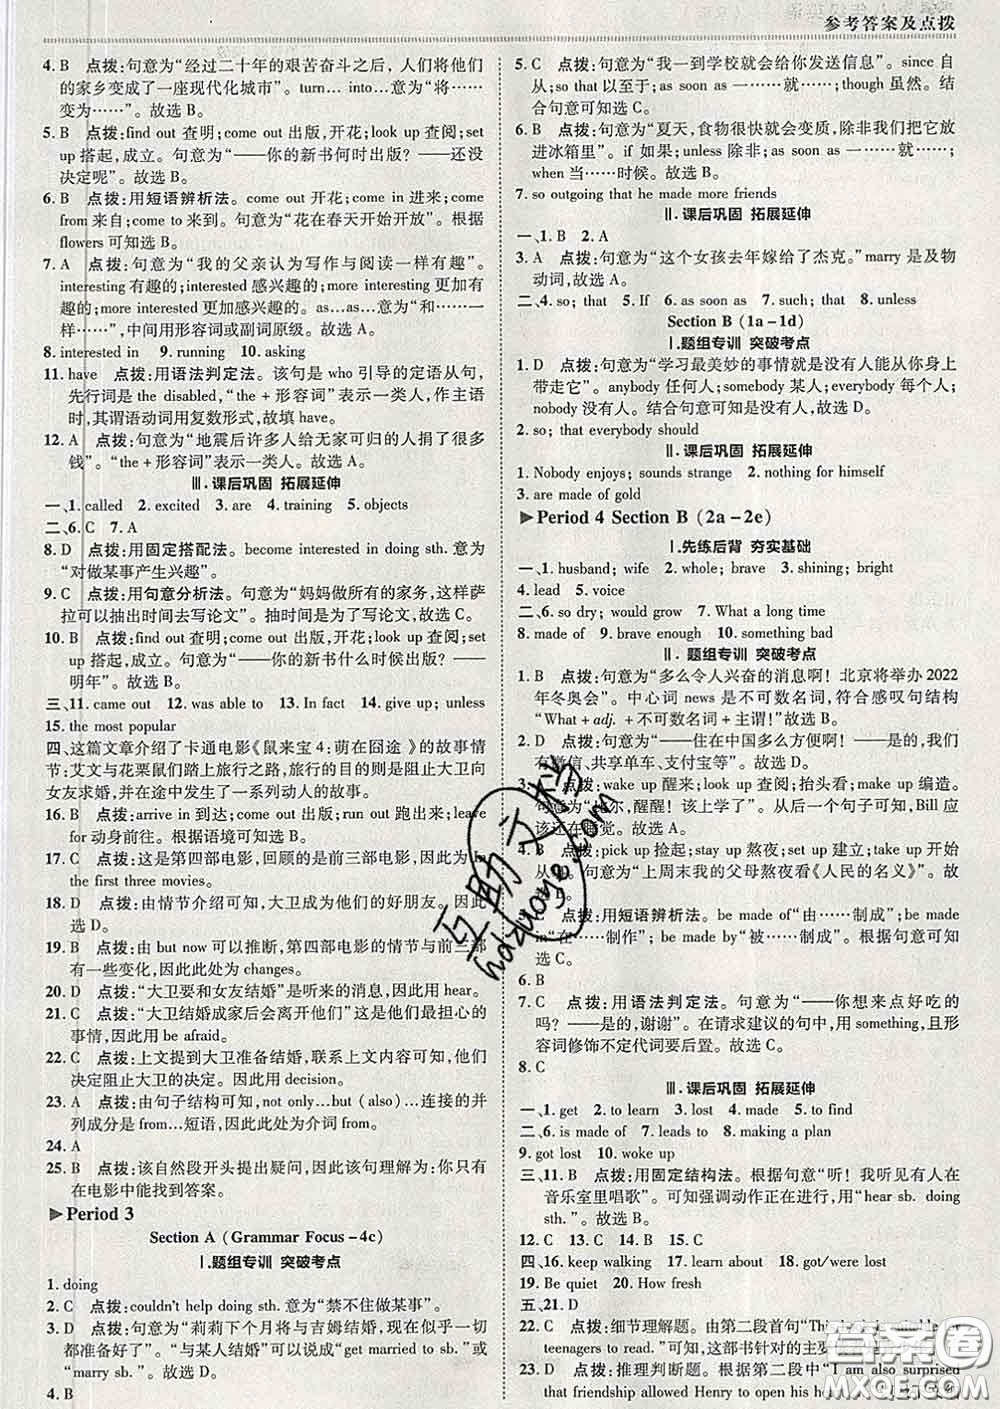 参考答案及点拨
4. B 点拨:句意为“经过二十年的艰苦奋斗之后, 人们将他们
的家乡变成了一座现代化城市”。turn…into…意为“将……
变为……”。故选 B。
5. B 点拨: find out 查明; come out 出版,开花; look up 查阅; set
up 搭起,成立。句意为“——你的新书何时出版? ——还没
决定呢”。故选 B。
6. B 点拨:用短语辨析法。come out 开花; come in 进来; come
from 来自; come to 来到。句意为“花在春天开始开放”。根据
flowers 可知选 B。
7. A 点拨:句意为“我的父亲认为写作与阅读一样有趣”。
interesting 有趣的; interested 感兴趣的; more interesting 更加有
趣的; more interested 更加感兴趣的。as…as…意为“和……
一样……”, 中间用形容词或副词原级。故选 A。
8. interested in 9. running 10. asking
11. have 点拨:用语法判定法。该句是 who 引导的定语从句,
先行词是 the disabled, “the + 形容词”表示一类人, 作主语
时, 其谓语动词用复数形式, 故填 have。
12. A 点拨:句意为“地震后许多人给无家可归的人捐了很多
钱”。“the + 形容词”表示一类人。故选 A。
Ⅲ. 课后巩固 拓展延伸
一、1. called 2. excited 3. are 4. training 5. objects
二、6. C 7. A
8. D 点拨:用固定搭配法。become interested in doing sth. 意为
“对做某事产生兴趣”。
9. C 点拨:用句意分析法。句意为“妈妈做所有的家务,这样萨
拉可以抽出时间去写论文”。抽时间是为了写论文,故选 C。
10. B 点拨: find out 查明; come out 出版,开花; look up 查阅; set
up 搭起,成立。句意为“——你的新书什么时候出版? ——
明年”。故选 B。
三、11. came out 12. was able to 13. In fact 14. give up; unless
15. the most popular
四、这篇文章介绍了卡通电影《鼠来宝 4:萌在囧途》的故事情
节:艾文与花栗鼠们踏上旅行之路,旅行的目的是阻止大卫向
女友求婚,并在途中发生了一系列动人的故事。
16. B 点拨: arrive in 到达; come out 出版; run out 跑出来; leave
for 动身前往。根据语境可知选 B。
17. C 点拨:这是第四部电影,回顾的是前三部电影,因此为 In
the first three movies.
18. D 点拨:由情节介绍可知,大卫成为他们的好朋友。因此
选 D。
19. B 点拨:由 but now 可以推断,第四部电影的情节与前三部
有一些变化,因此此处为 changes。
20. D 点拨:“大卫要和女友结婚”是听来的消息,因此用 hear。
21. C 点拨:“大卫结婚成家后会离开他们”这是他们最担心的
事情,因此用 be afraid。
22. C 点拨:上文提到大卫准备结婚,联系上文内容可知,他们
决定阻止大卫的决定。因此用 decision。
23. A 点拨:由句子结构可知, not only…but (also)…连接的并
列成分是 from…短语,因此此处为介词 from。
24. A
25. B 点拨:该自然段开头提出疑问,因此该句理解为:你只有
在电影中能找到答案。
Period 3
Section A (Grammar Focus - 4c)
Ⅰ. 题组专训 突破考点
1. doing
2. C 点拨: couldn't help doing sth. 意为“禁不住做某事”。
3. D 点拨:句意为“莉莉下个月将与吉姆结婚,现在似乎一切
都准备好了”。“与某人结婚”可以说“get married to sb.”或
“marry sb.”。故选 D。
4. B
5. C 点拨:句意为“我一到学校就会给你发送信息”。since 自
从; so that 以至于; as soon as 一……就……; though 虽然。结
合句意可知选 C。
6. B 点拨:句意为“夏天,食物很快就会变质,除非我们把它放
进冰箱里”。if 如果; unless 除非; as soon as 一……就……;
when 当……时候。故选 B。
7. so outgoing that he made more friends
Ⅱ. 课后巩固 拓展延伸
一、1. B 2. A
3. A 点拨:句意为“这个女孩去年嫁给了杰克。”marry 是及物
动词,故选 A。
二、4. so; that 5. If 6. as soon as 7. such; that 8. unless
Section B (1a - 1d)
Ⅰ. 题组专训 突破考点
1. D 点拨:句意为“学习最美妙的事情就是没有人能从你身上
带走它”。anybody 任何人; somebody 某人; everybody 每个人;
nobody 没有人。结合句意可知是没有人,故选 D。
2. so; that everybody should
Ⅱ. 课后巩固 拓展延伸
1. Nobody enjoys; sounds strange 2. nothing for himself
3. are made of gold
Period 4 Section B (2a - 2e)
Ⅰ. 先练后背 夯实基础
一、1. husband; wife 2. whole; brave 3. shining; bright
4. lead 5. voice
二、6. so dry; would grow 7. What a long time
8. made of 9. brave enough 10. something bad
Ⅱ. 题组专训 突破考点
1. B 点拨:句意为“多么令人兴奋的消息啊! 北京将举办 2022
年冬奥会”。中心词 news 是不可数名词,符合感叹句结构
“What + adj. + 不可数名词 + 主谓!”故选 B。
2. D 点拨:句意为“——住在中国多么方便啊! ——是的,我们
有微信、共享单车、支付宝等”。故选 D。
3. 点拨: wake up 醒来; look up 查阅; 抬头看; make up 编造。
句意为“比尔,醒醒! 该上学了”。从后一个句子可知, Bill 应
该还在睡觉。故选 A。
4. B 点拨: pick up 捡起; stay up 熬夜; set up 建立; take up 开始
从事。句意为“上周末我的父母熬夜看《人民的名义》”。故
选 B。
点拨:用短语辨析法。be made of“由……制成”; be made
in“在……制作”; be made by“被……制成”。故选 C。
6. B
7. C 点拨:用语法判定法。句意为“——你想来点好吃的
吗? ——是的,谢谢”。在请求建议的句中,用 something,且形
容词修饰不定代词要后置。故选 C。
8. C
Ⅲ. 课后巩固 拓展延伸
一、1. get 2. to learn 3. lost 4. made 5. to find
二、6. is made of 7. leads to 8. making a plan
9. got lost 10. woke up
三、11. B 点拨:用固定结构法。根据句意“听! 我听见有人在
音乐室里唱歌”。可知强调动作正在进行,用“hear sb. doing
sth.”。故选 B。
12. C 13. C 14. B 15. C
四、16. keep walking 17. learn about 18. got/were lost
19. Be quiet 20. How fresh
五、21. D
22. C 点拨:细节理解题。由第二段首句“This
teenagers to read.”可知,这部书针对的主要
23. D 点拨:推理判断题。根据第二段中“I am also surprised
that friendship allowed Henry to open his
互助文档
hdzuoye.com
答案圈
MXQE.COM